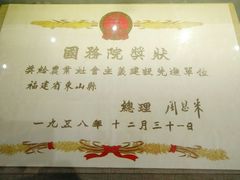 國務院獎狀
獎給農業社會主義建設先進單位
福建省東山縣
總理 周恩來
一九五八年十二月三十一日